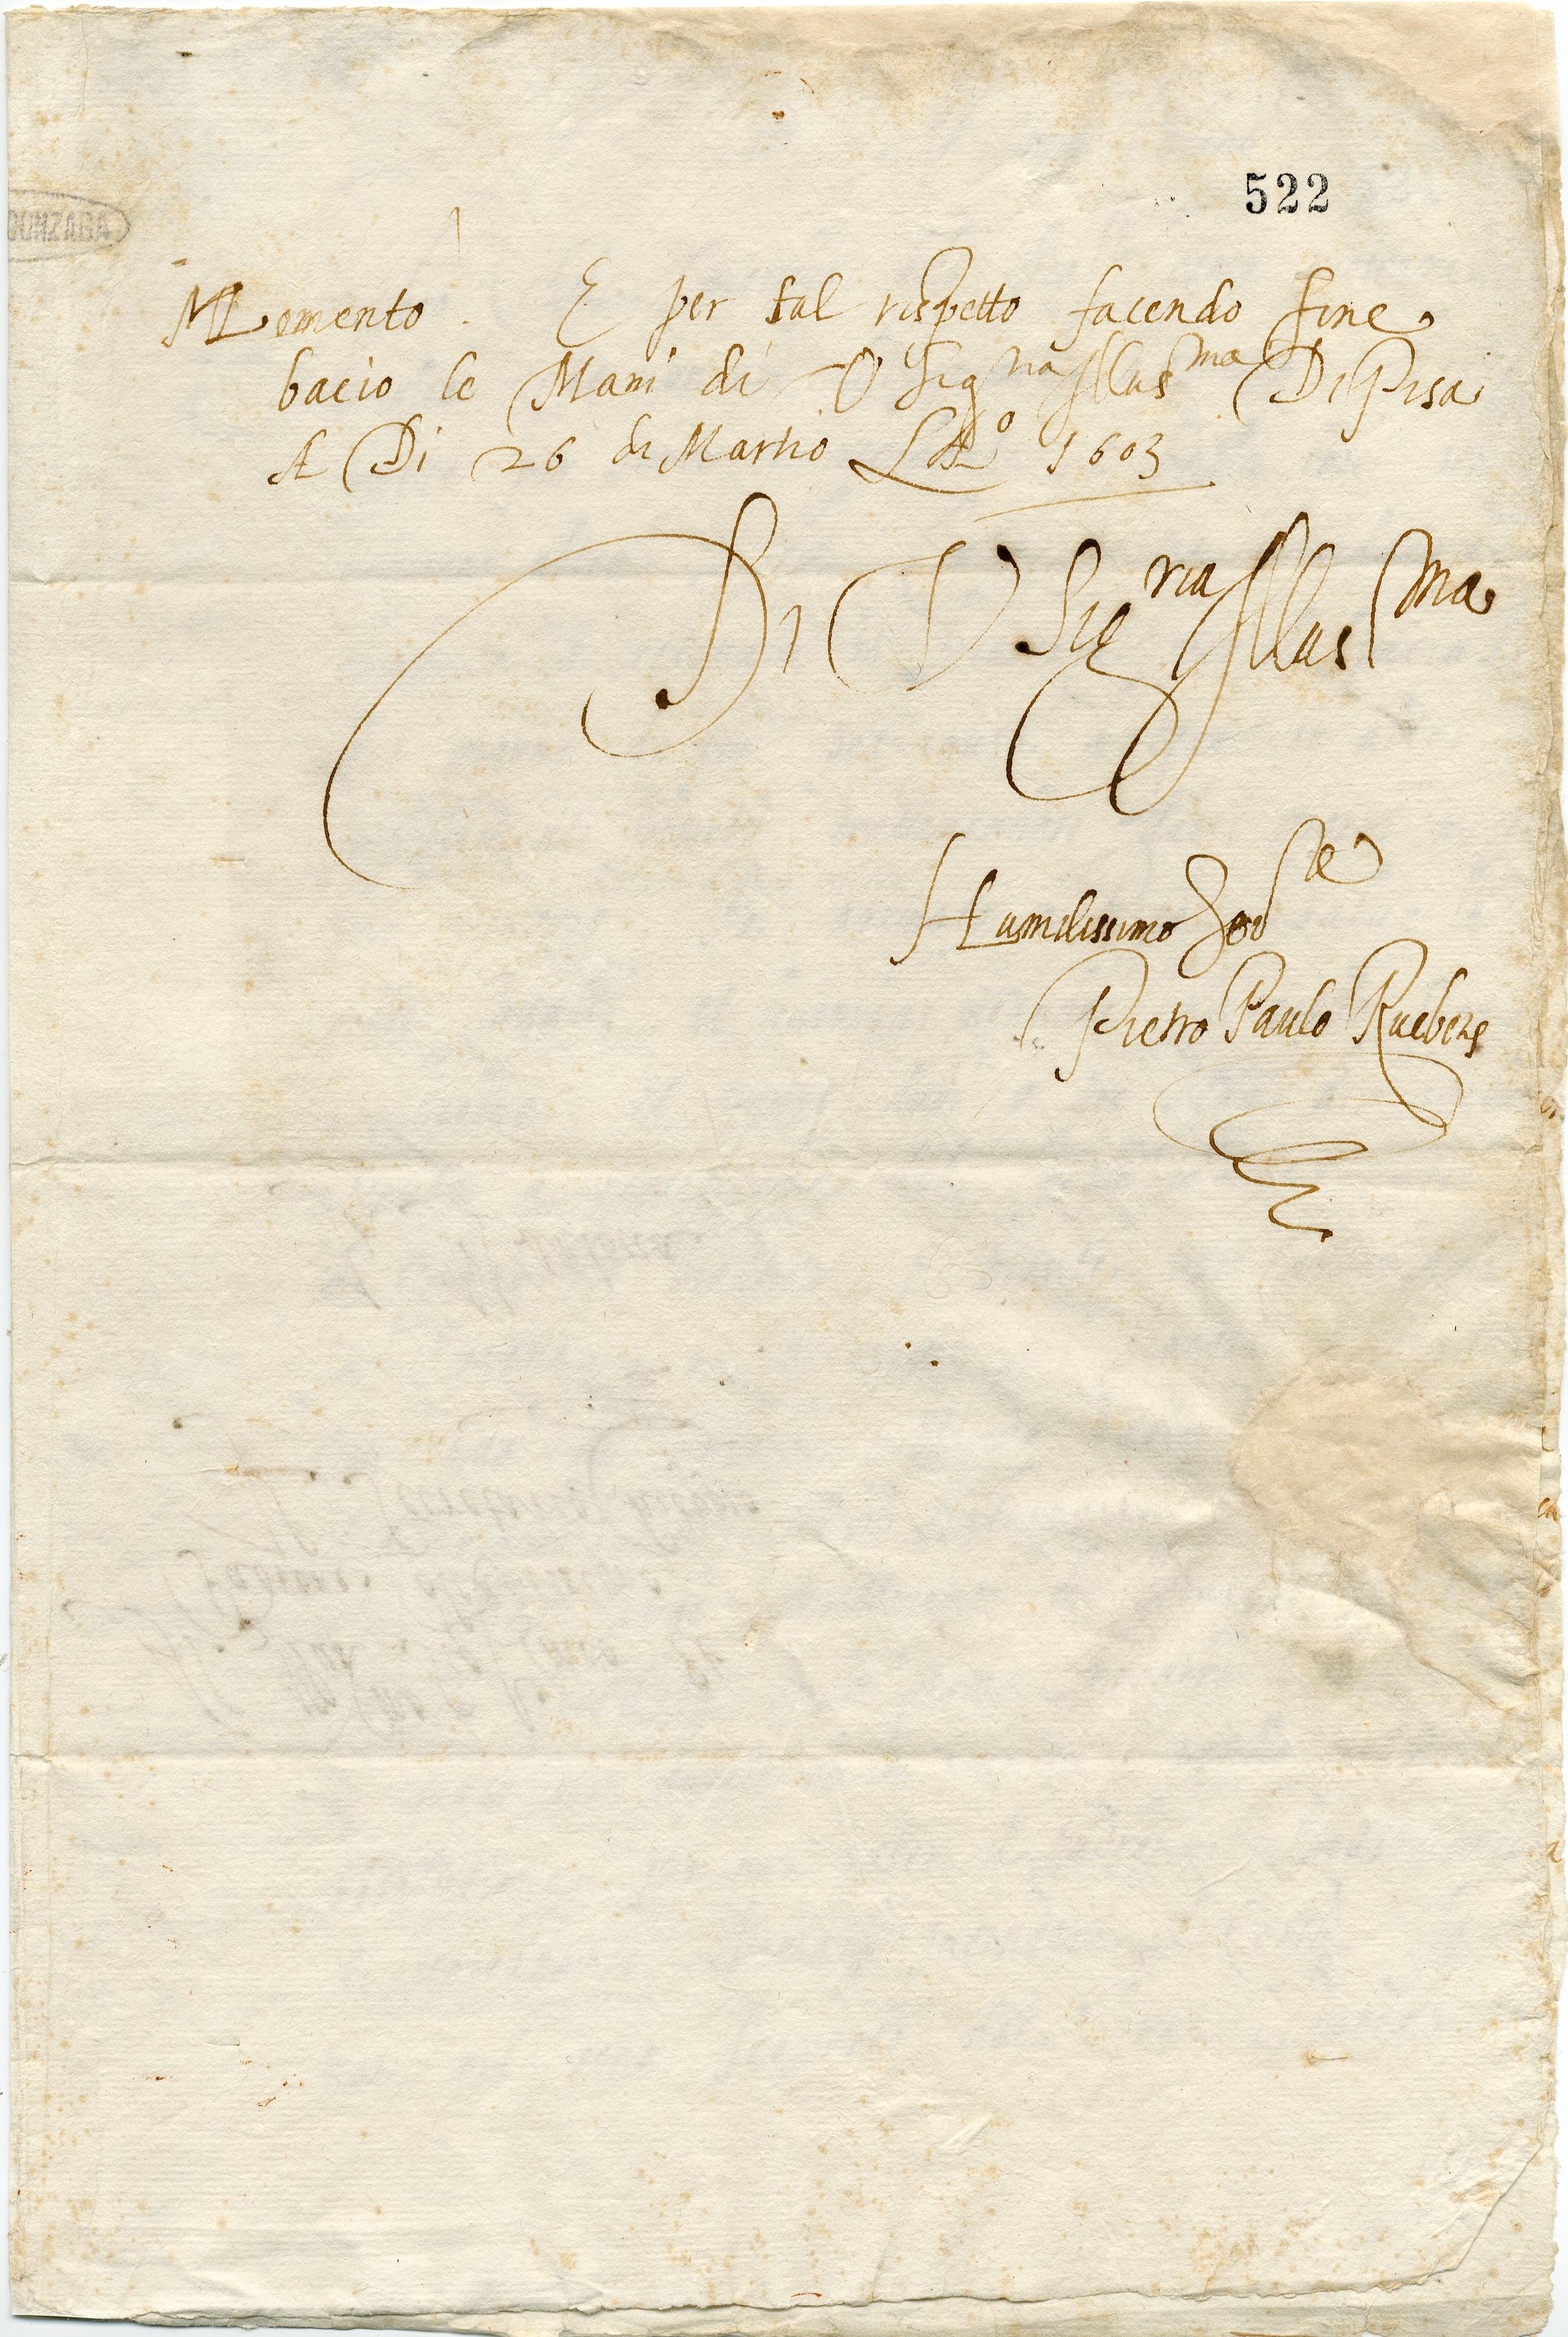 522
GONZAGA
Momento. E per tal rispetto facendo fine
bacio le Mani di V Sig^ria Illus^ma Di Pisa
A Di 26 di Martio 1603
Di V Sig^ria Illus^ma
Humilissimo
Pietro Paulo Rubens